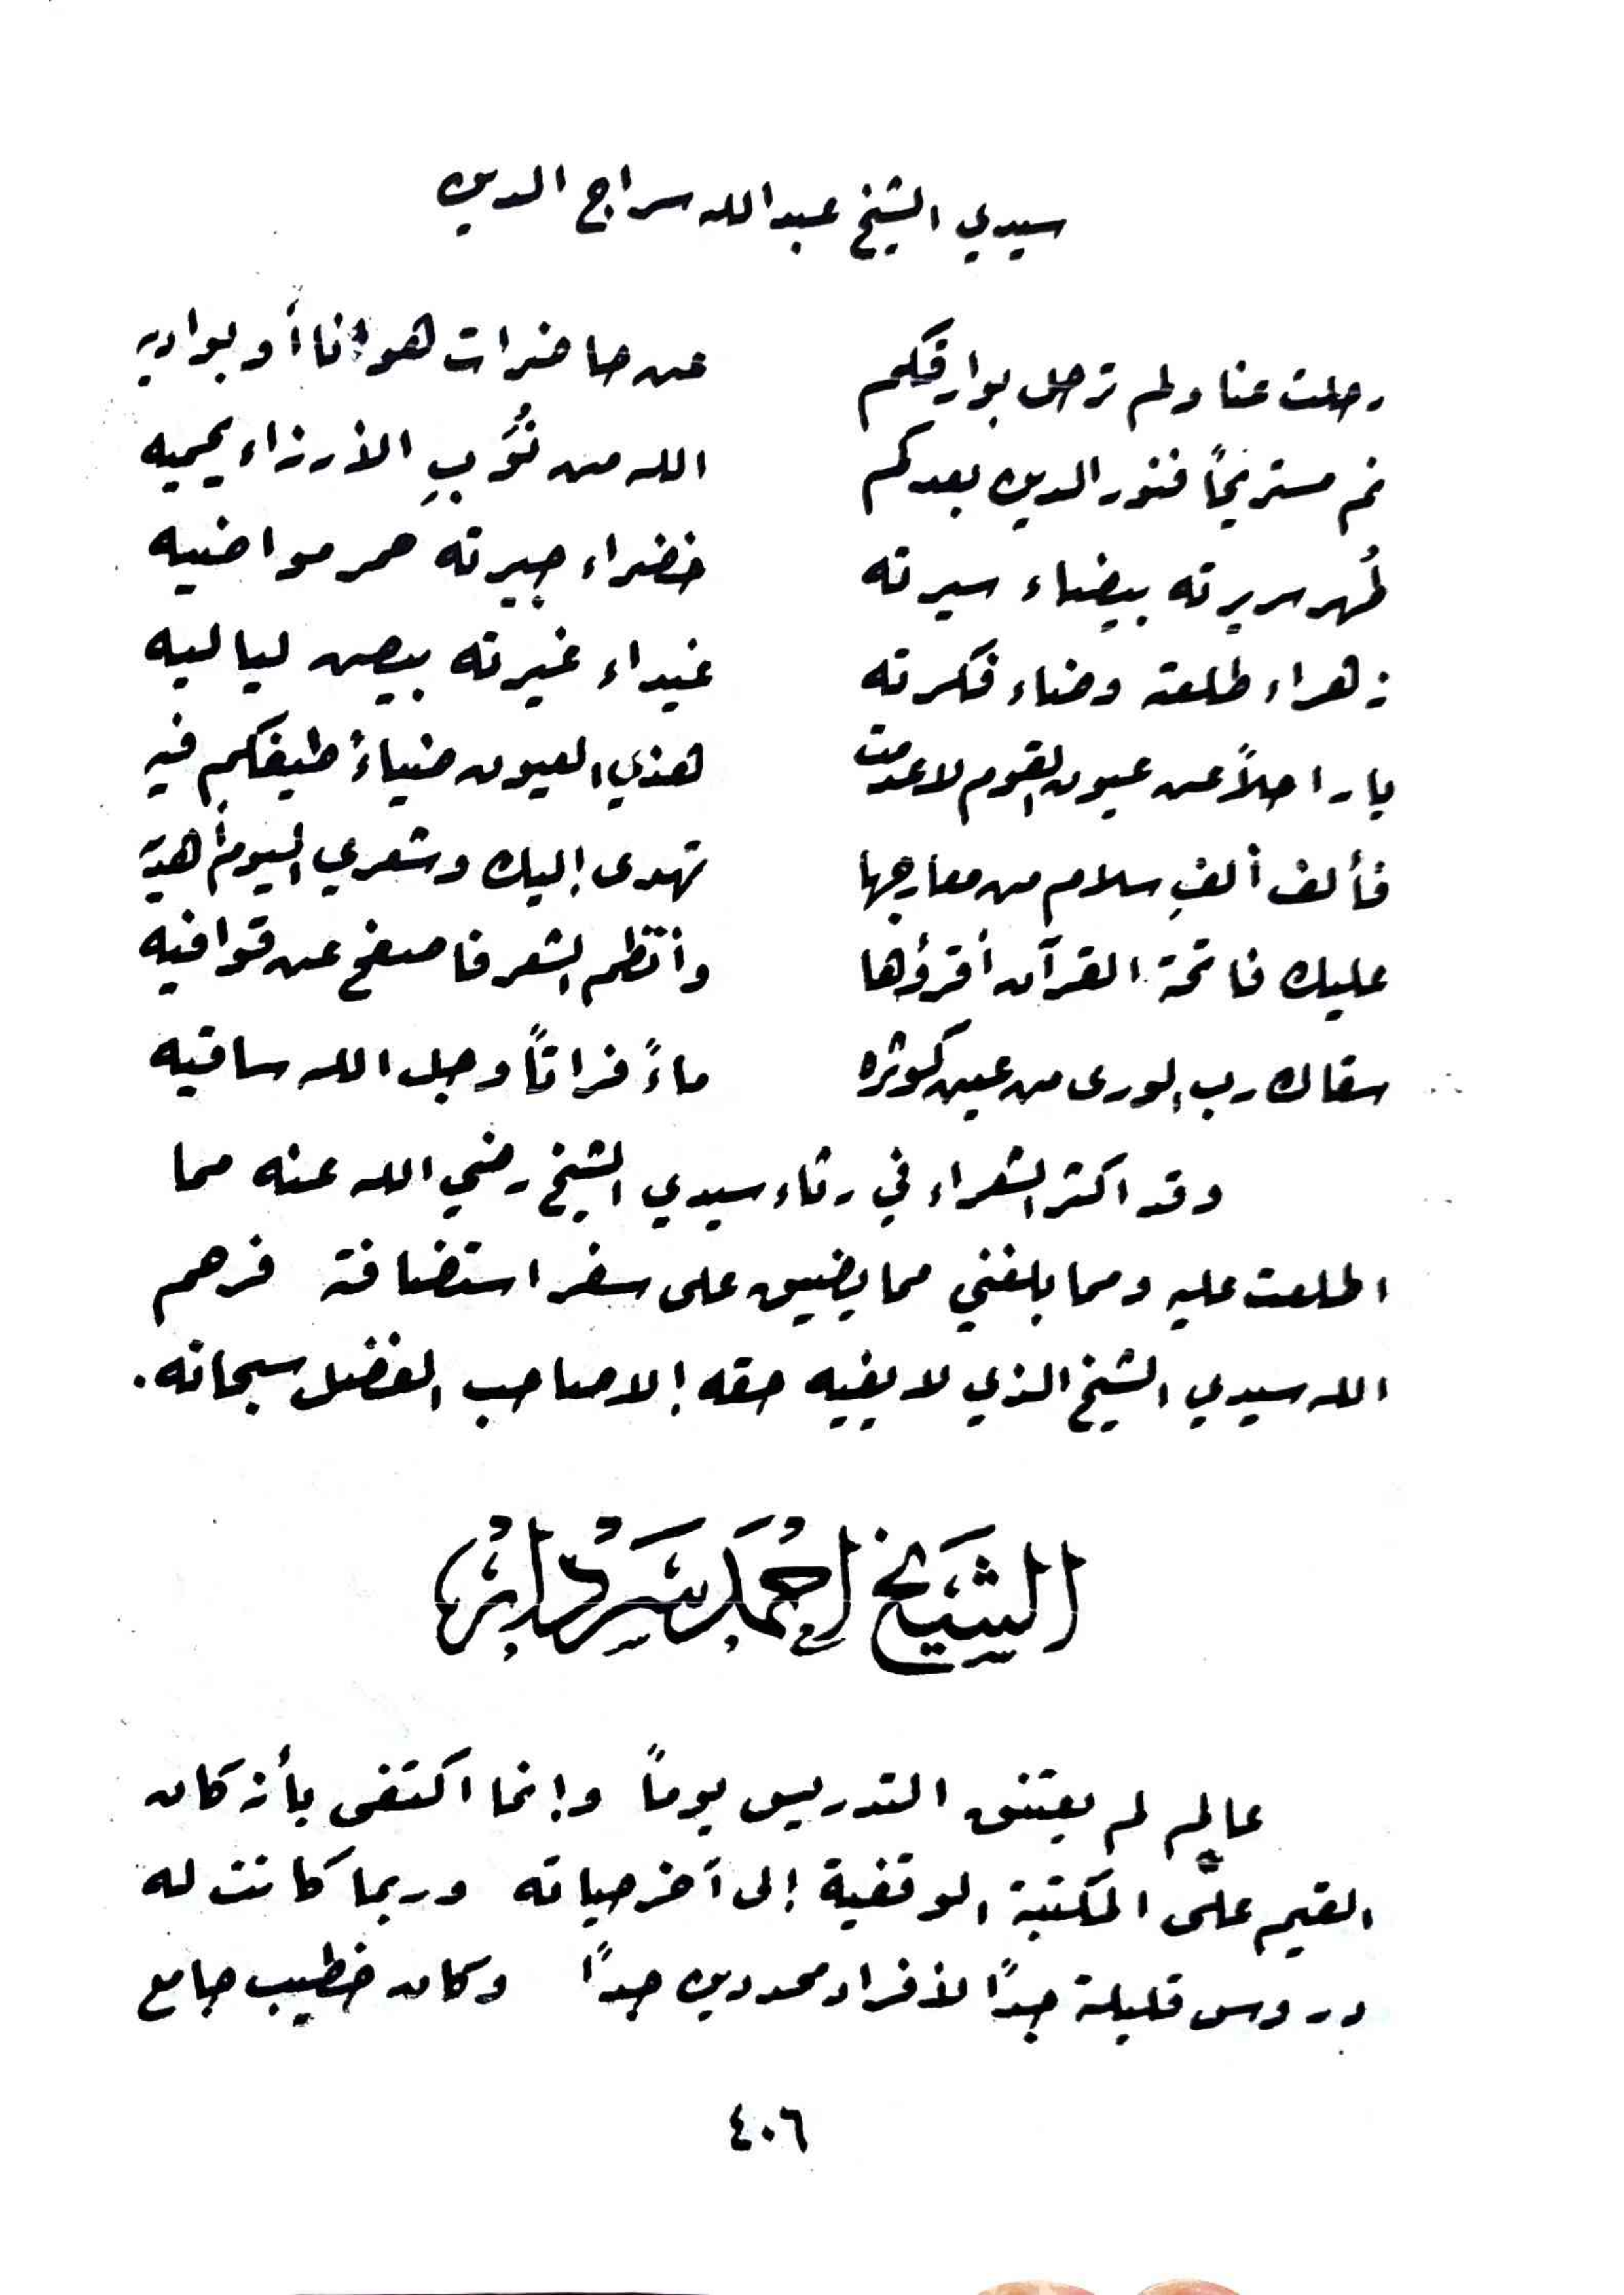 سيدي الشيخ عبد الله سراج الدين
رحلت عنا ولم ترحل بوارقكم عن حاضرات هوانا أو بواديه
نم مستريحاً فنور الدين بعدكم الله من نُوَبِ الأرزاء يحميه
طُهر سريرته بيضاء سيرته خضراء جيرته حمر مواضيه
زهراء طلعته وضاء فكرته غيداء غيرته بيض لياليه
يا راحلاً عن عيون القوم لا عدمت هذي العيون ضياءً طيفكم فيه
فألف ألفِ سلام من معارجها تهدى إليك وشعري اليوم أهديه
عليك فاتحة القرآن أقرؤها وأنظم الشعر فاصفح عن قوافيه
سقاك رب الورى من عين كوثره ماءً فراتاً وجل الله ساقيه
وقد اكثر الشعراء في رثاء سيدي الشيخ رضي الله عنه مما
اطلعت عليه ومما بلغني مما يضيق على سفر استضافته فرحم
الله سيدي الشيخ الذي لا يفيه حقه إلا صاحب الفضل سبحانه.
الشيخ احمد سردار
عالم لم يعتنق التدريس يوماً وإنما اكتفى بأن كان
القيم على المكتبة الوقفية إلى آخر حياته وربما كانت له
دروس قليلة جداً لأفراد محدودين جداً وكان خطيب جامع
٤٠٦